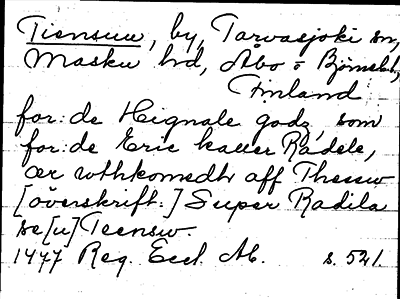 Tiensuu, by, Tarvasjoki sn,
Masku hd, Åbo o Björneb.,
Finland
for: de Heignale godz, som
for: de Eric kaller Rädele,
ær wthkomedh aff Thesuw
[överskrift:] Super Radila
se[u] Teensw.
1477 Reg. Eccl. Ab. s. 521.